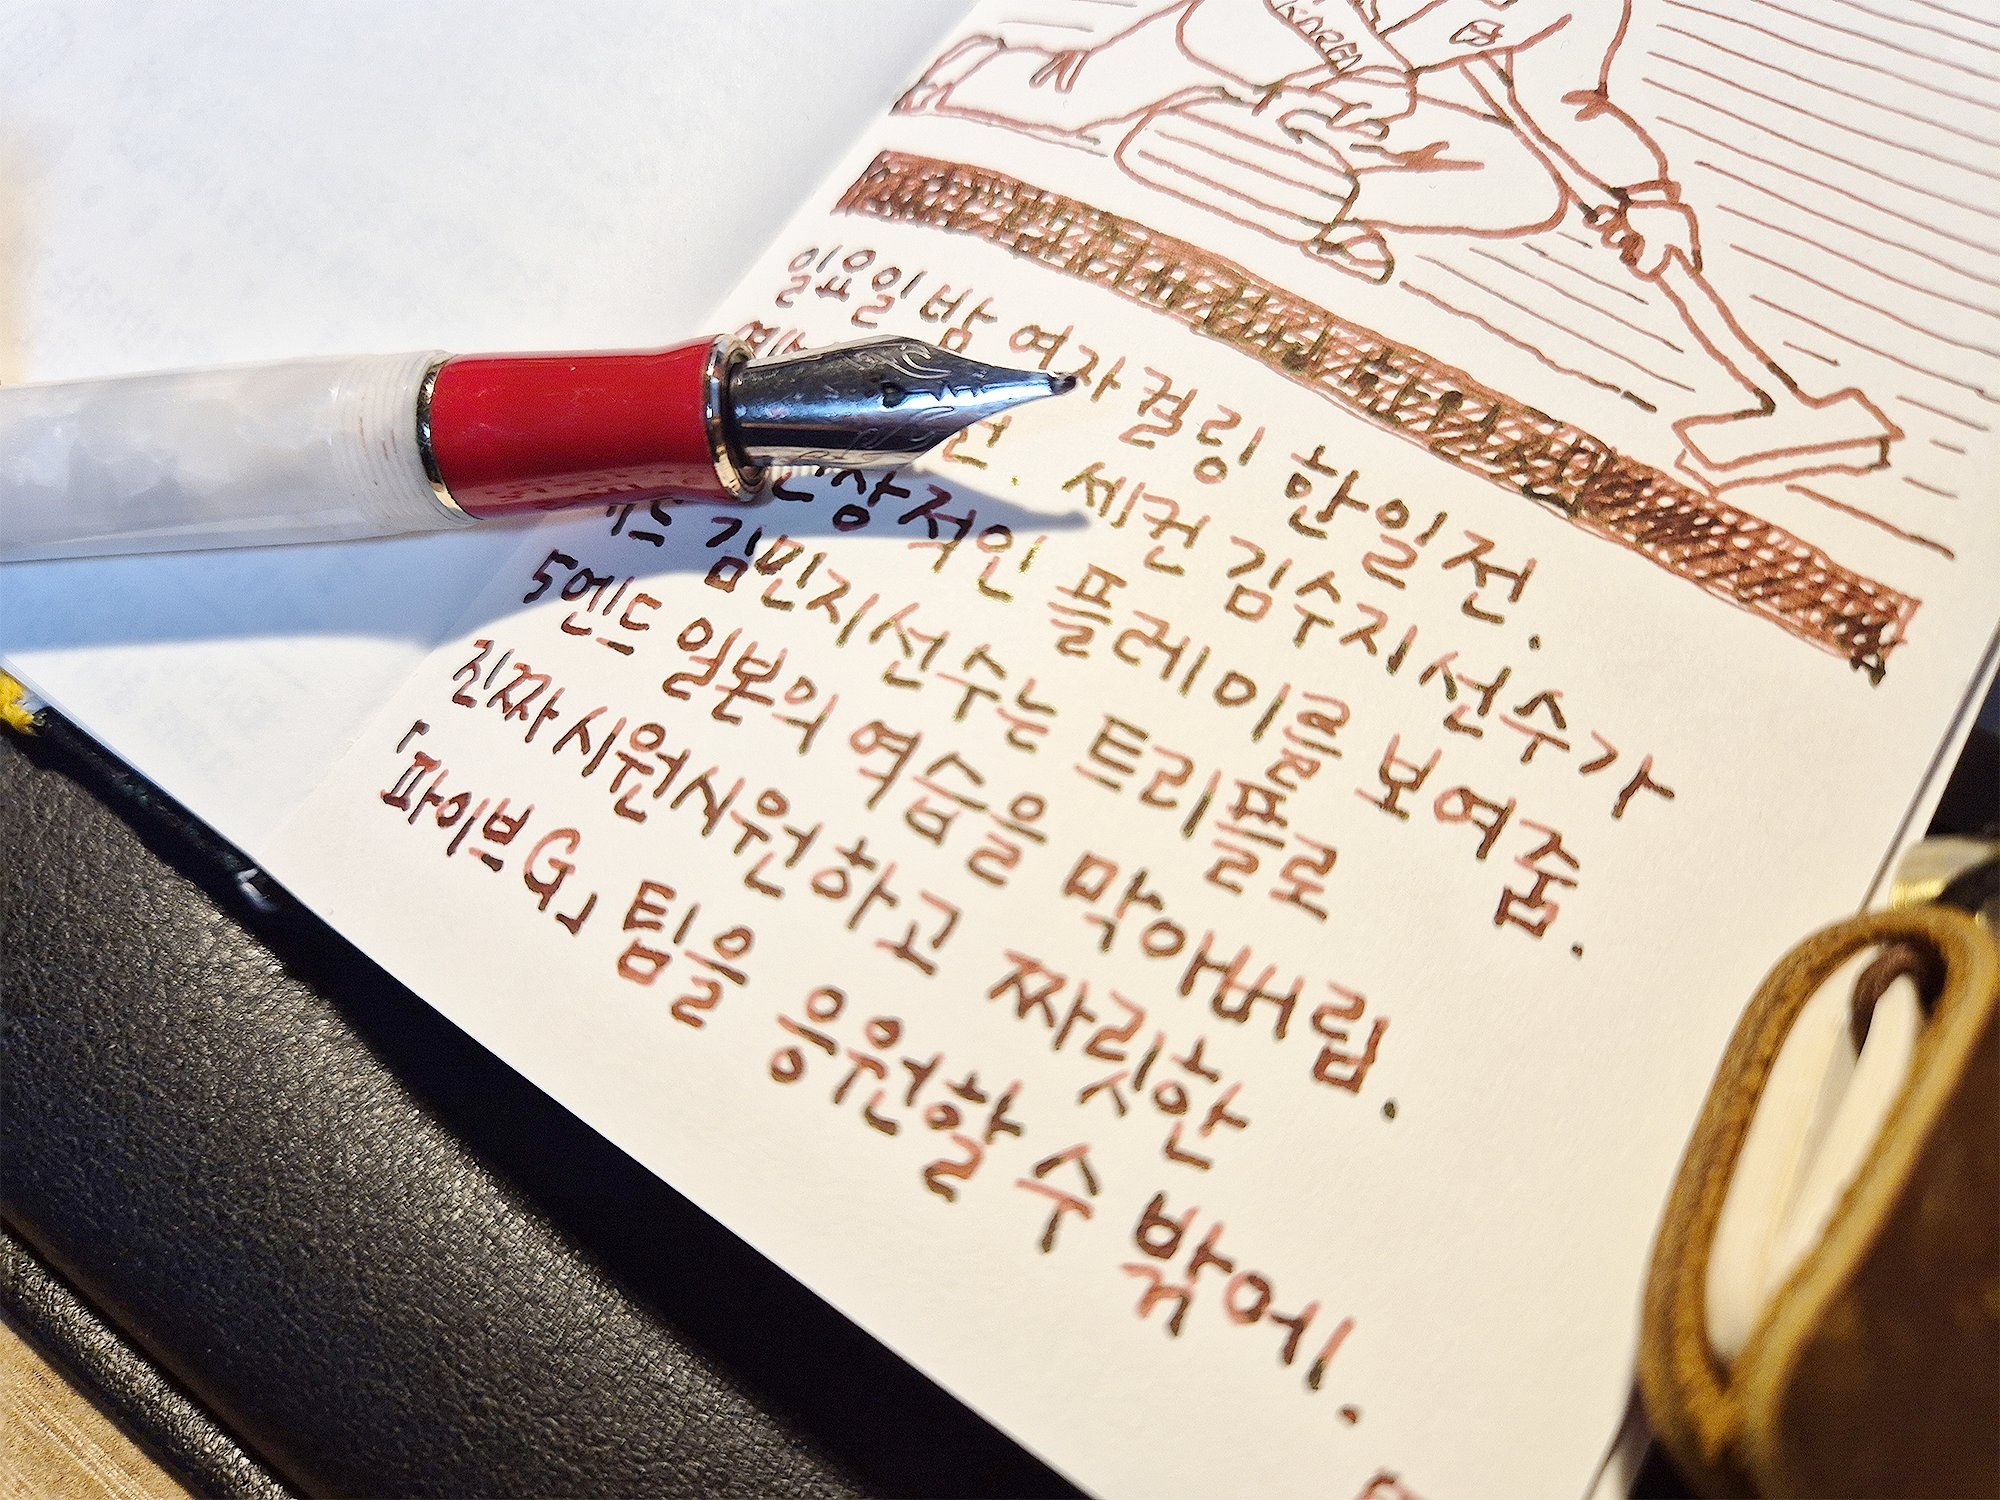 KOREA
일요일 밤 여자 컬링 한일전.
세컨 김수지 선수가
인상적인 플레이를 보여줌.
김민지 선수는 트리플로
5엔드 일본의 역습을 막아버림.
진짜 시원시원하고 짜릿한
「파이브G」 팀을 응원할 수 밖에.